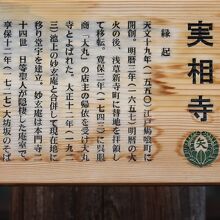 実相寺
縁起
天文十九年(一五五〇)江戸桜田町に
開創。明暦三年(一六五七)明暦の大
火の後、浅草新寺町に替地を拝領し
て移転。寛保二年(一七四二)呉服
商「大丸」の店主の帰依を受け大丸
寺とよばれた。大正十二年(一九
三)池上の妙玄庵と合併して現在地に
移り堂宇を建立。妙玄庵は本門寺二
十四世 日等聖人が隠棲した庵室で、
享保十二年(一七二七)大坊坂のそば